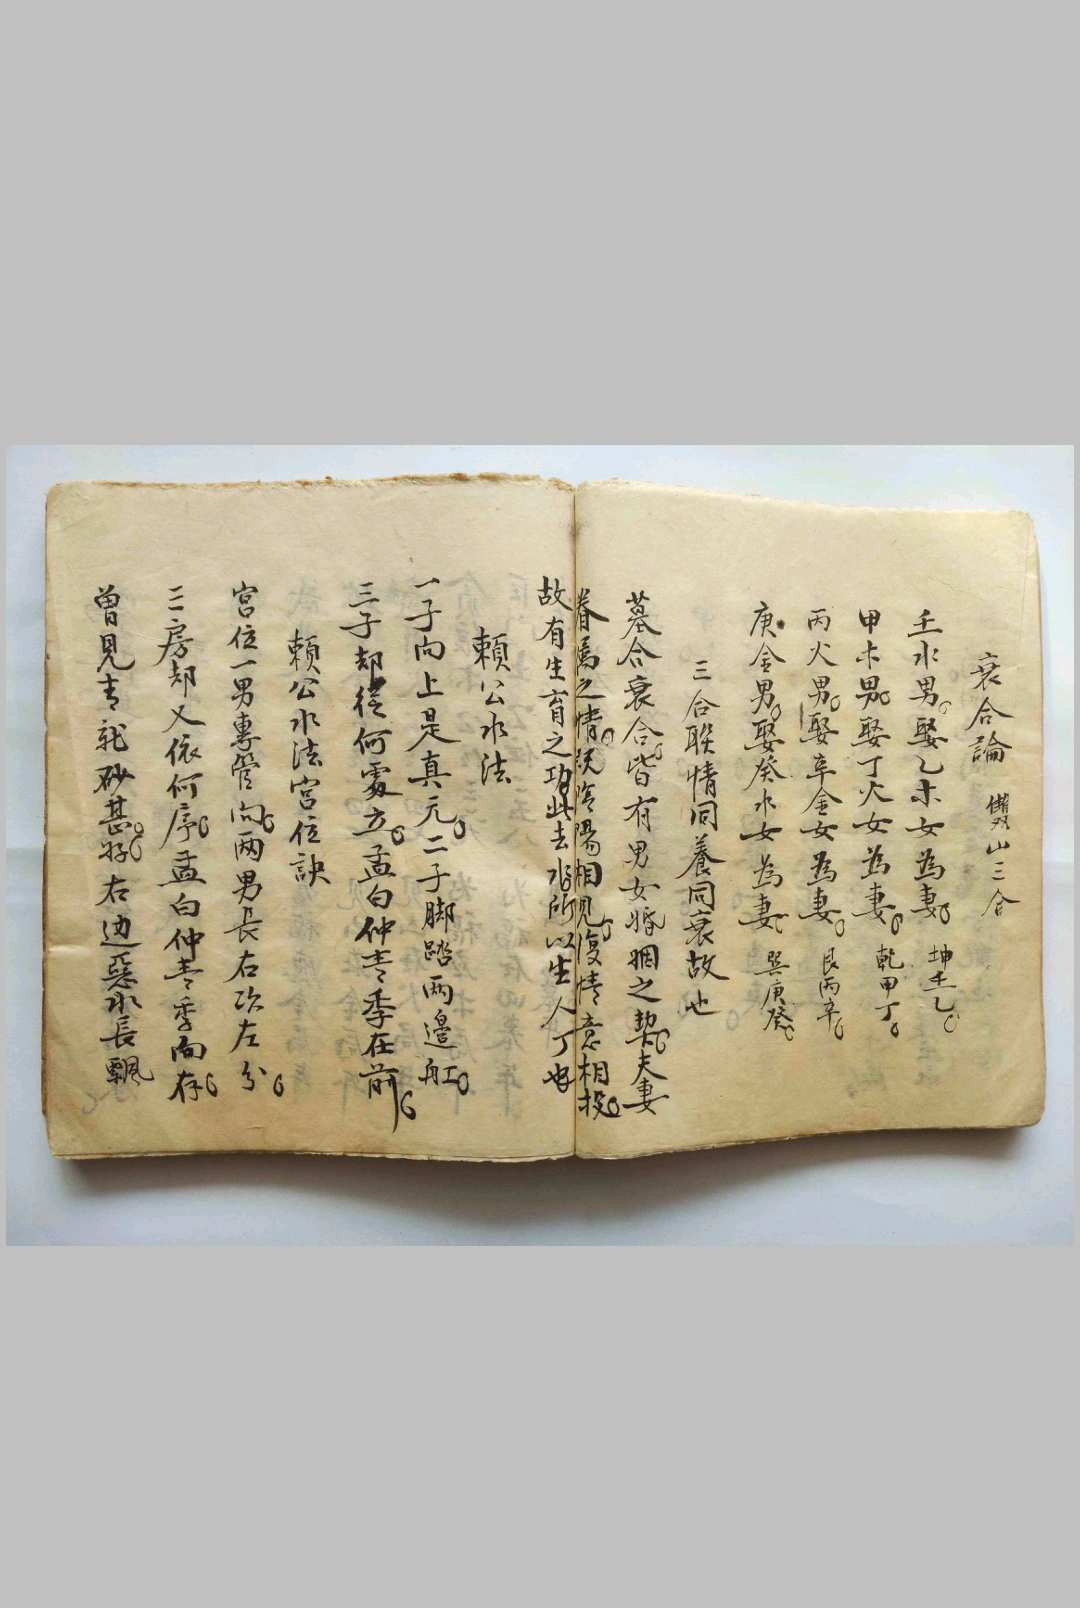 衰合論 雙山三合
壬水男娶乙木女為妻 坤壬乙
甲木男娶丁火女為妻 乾甲丁
丙火男娶辛金女為妻 艮丙辛
庚金男娶癸水女為妻 巽庚癸
三合联情同養同衰故也
墓合衰合皆有男女婚姻之契夫妻
眷属之情陰陽相見復情意相投
故有生育之功此去水所以生人丁也
賴公水法
一子向上是真元二子脚踏两邉舡
三子却從何處立孟白仲青季在前
賴公水法宫位訣
宫位一男專管向两男長右次左分
三房却又依何序孟白仲青季向存
曽見青龍砂甚好右边惡水長飄